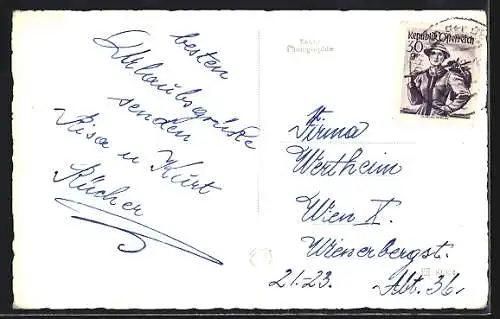 besten
Urlaubsgrüße
senden
Risa u Kurt
Rücher
Echte
Photographie
Republik Österreich
30
g
Firma
Wertheim
Wien X.
Wienerbergst.
21-23. Abt. 36.